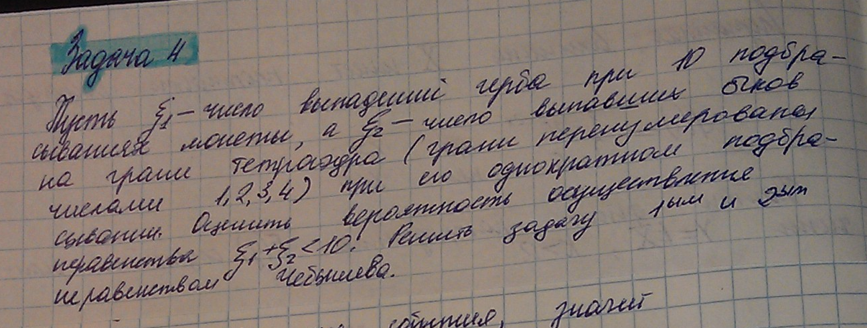 Задача 4
Пусть ξ₁ – число выпадений герба при 10 подбра-
сываниях монеты, а ξ₂ – число выпавших очков
на грани тетраэдра (грани перенумерованы
числами 1,2,3,4) при его однократном подбра-
сывании. Оценить вероятность осуществления
неравенства ξ₁+ξ₂<10. Решить задачу 1ым и 2ым
неравенством Чебышева.
события, значит